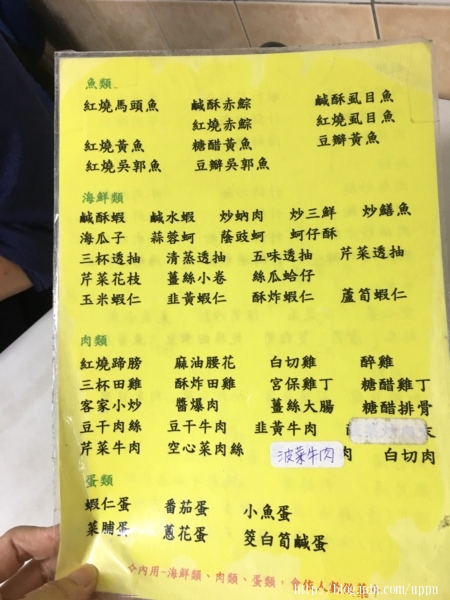 魚類
紅燒馬頭魚 鹹酥赤鯮 鹹酥虱目魚
紅燒赤鯮 紅燒虱目魚
紅燒黃魚 糖醋黃魚 豆瓣黃魚
紅燒吳郭魚 豆瓣吳郭魚
海鮮類
鹹酥蝦 鹹水蝦 炒蚋肉 炒三鮮 炒鱔魚
海瓜子 蒜蓉蚵 蔭豉蚵 蚵仔酥
三杯透抽 清蒸透抽 五味透抽 芹菜透抽
芹菜花枝 薑絲小卷 絲瓜蛤仔
玉米蝦仁 韭黃蝦仁 酥炸蝦仁 蘆筍蝦仁
肉類
紅燒蹄膀 麻油腰花 白切雞 醉雞
三杯田雞 酥炸田雞 宮保雞丁 糖醋雞丁
客家小炒 醬爆肉 薑絲大腸 糖醋排骨
豆干肉絲 豆干牛肉 韭黃牛肉
芹菜牛肉 空心菜肉絲 波菜牛肉 肉 白切肉
蛋類
蝦仁蛋 番茄蛋 小魚蛋
菜脯蛋 蔥花蛋 筊白筍鹹蛋
內用-海鮮類、肉類、蛋類,會依人數做菜!
http://blog.xuite.net/uppu